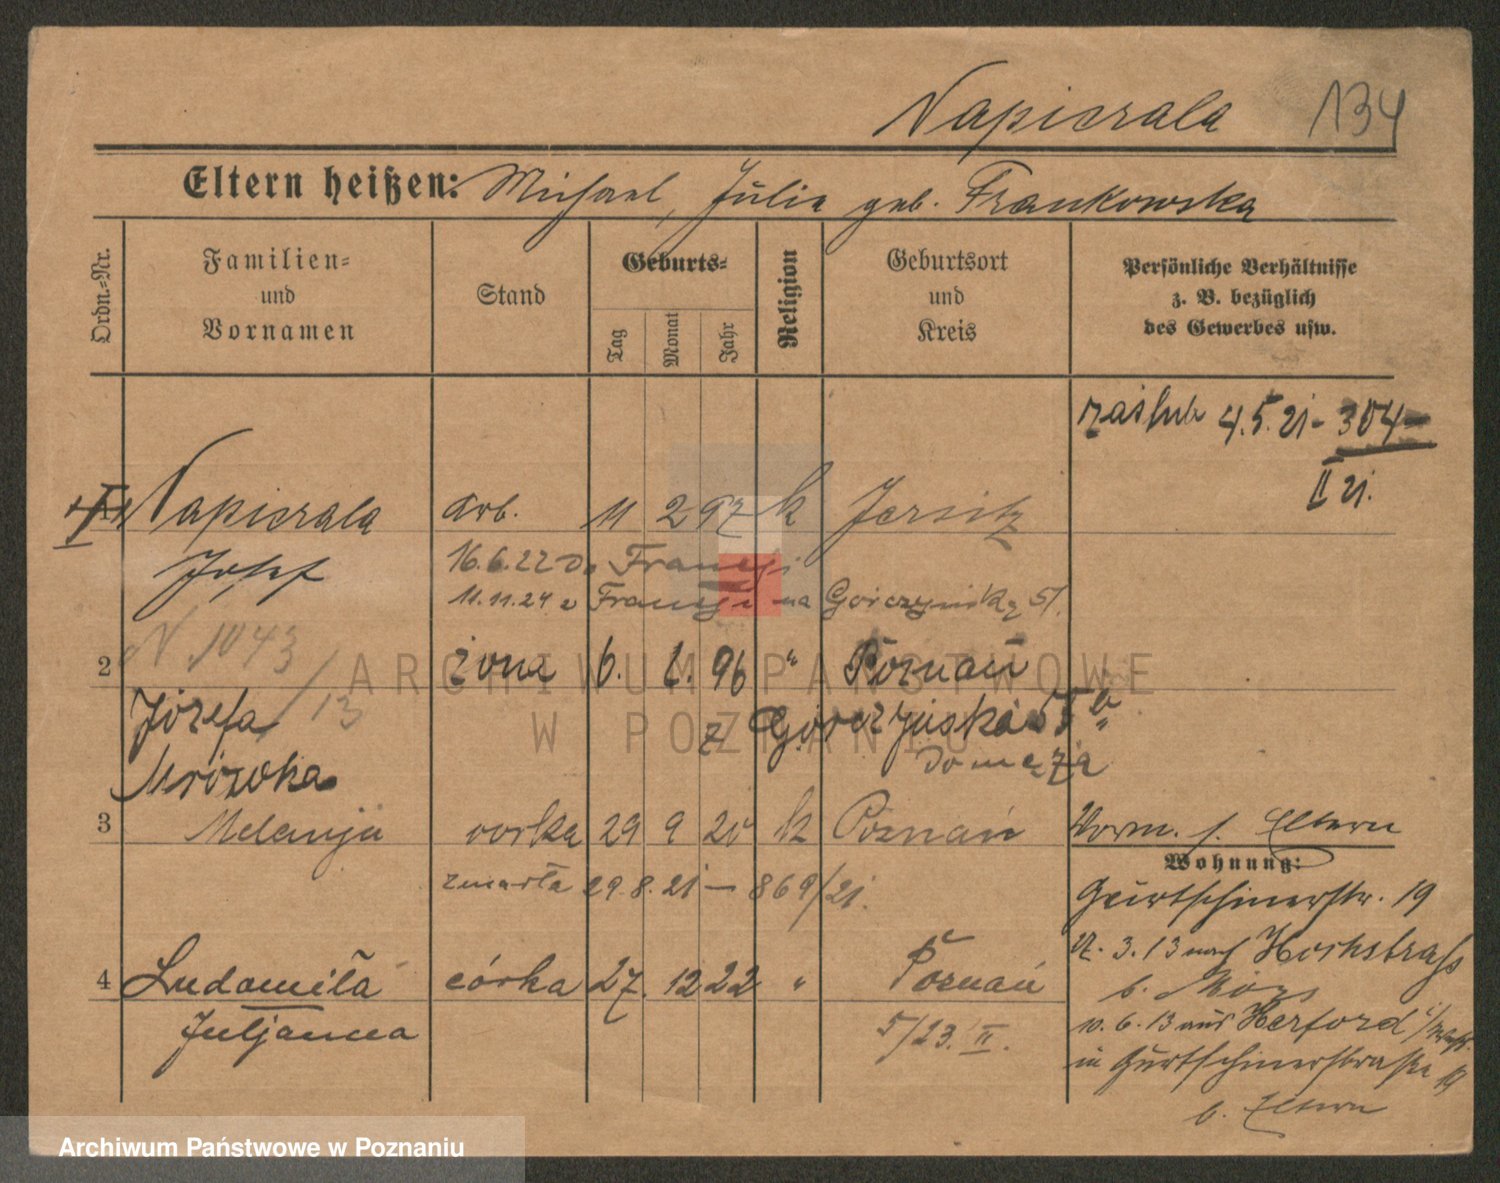 Napierala 134
Eltern heißen: Michael, Julie geb. Frankowska
Ordn.-Nr.
Familien-
und
Vornamen
Stand
Geburts-
Tag
Monat
Jahr
Religion
Geburtsort
und
Kreis
Persönliche Verhältnisse
z. B. bezüglich
des Gewerbes usw.
zaślub 4.5.21 - 304
II 21.
1 Napierala arb. 11 2 97 k Jersitz
Josef 16.6.22 do Francji
11.11.24 z Francji na Gorczyńską 51.
N 1043/13
2 żona 6. 1. 96 " Poznań
Józefa z Górczyńska 51a
Mrózwka Do męża
3 Melanja córka 29 9 20 k Poznań Vorm. s. Eltern
zmarła 29.8.21 — 869/21.
Wohnung:
Gurtschinerstr. 19
3.13 nach Hochstraß
b. Mörs
4 Ludomiła córka 27. 12 22 " Poznań
Juljanna 5/23. II.
10.6.13 aus Herford i/Westf.
in Gurtschinerstraße 19
b. Eltern
ARCHIWUM PAŃSTWOWE
W POZNANIU
Archiwum Państwowe w Poznaniu